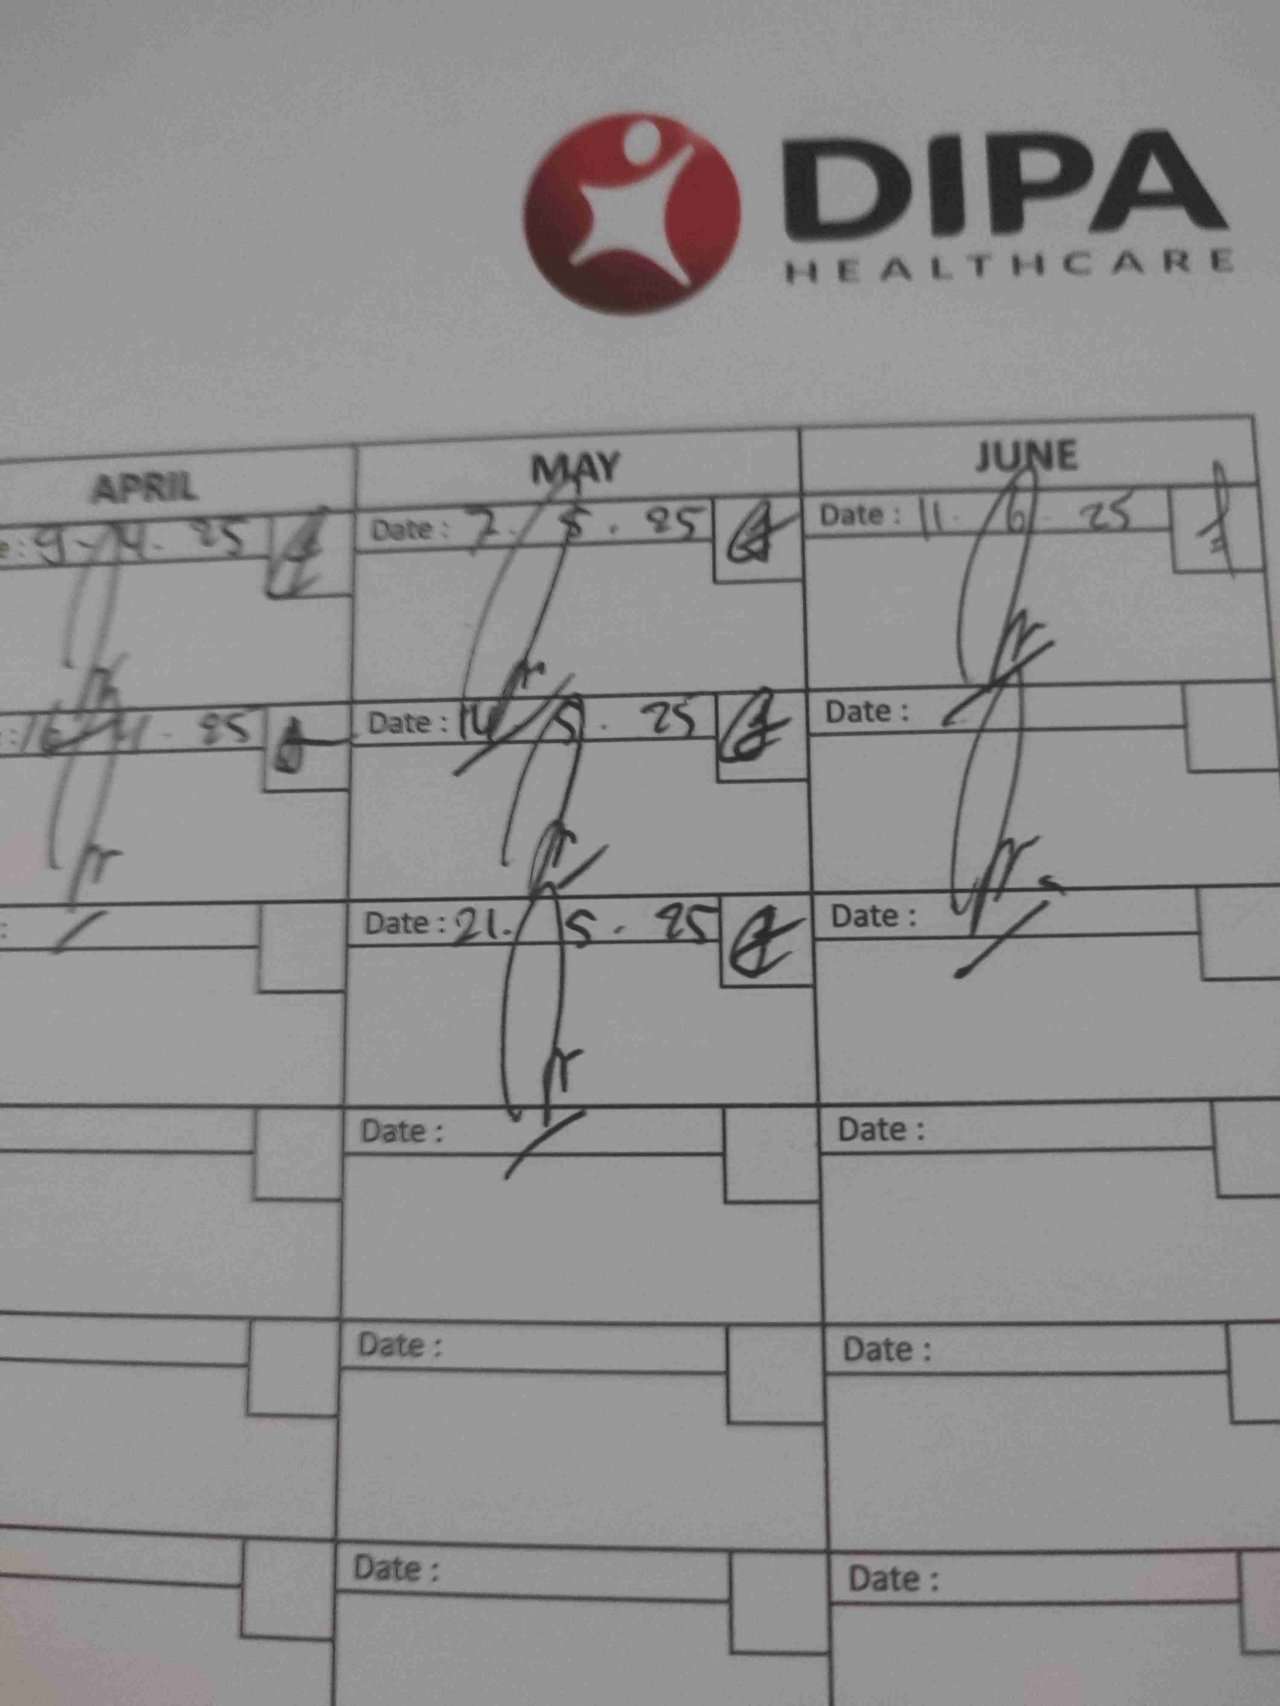 DIPA
HEALTHCARE
APRIL MAY JUNE
e : 9 - 4 . 25 Date : 7 . 5 . 25 Date : 11 . 6 . 25
: 16 . 4 . 25 Date : 14 . 5 . 25 Date :
: Date : 21 . 5 . 25 Date :
Date : Date :
Date : Date :
Date : Date :